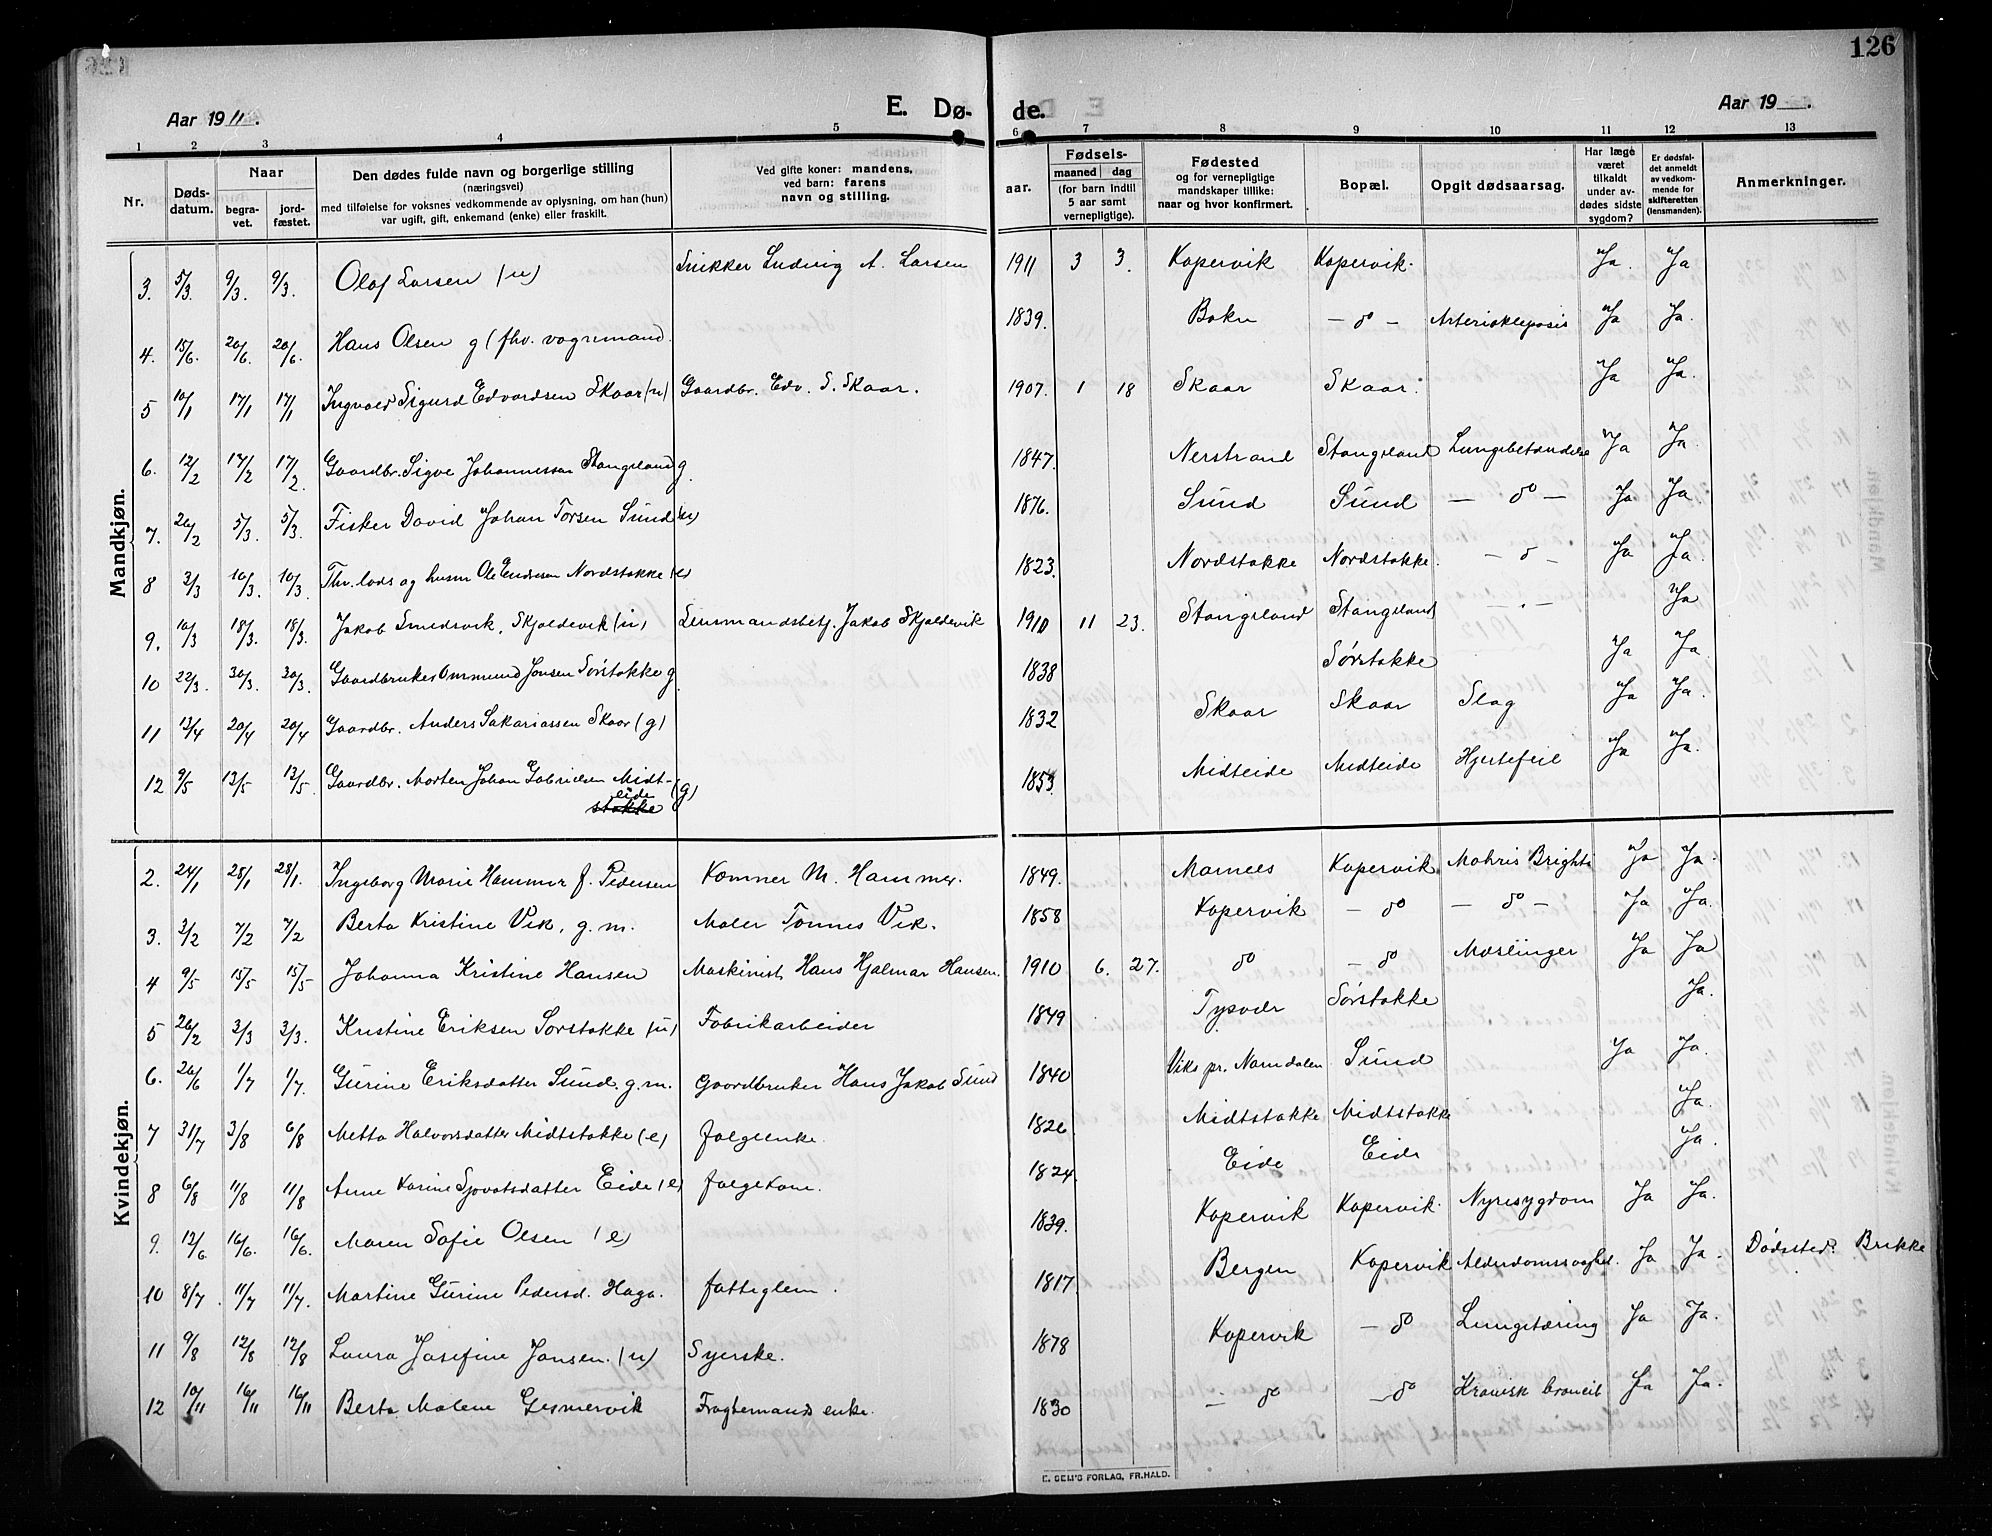 126
Aar 1911. E. Dø- de. Aar 19 .
1 2 3 4 5 6 7 8 9 10 11 12 13
Nr. Dødsdatum. Naar begravet. jordfæstet. Den dødes fulde navn og borgerlige stilling (næringsvei) med tilføielse for voksnes vedkommende av oplysning, om han (hun) var ugift, gift, enkemand (enke) eller fraskilt. Ved gifte koner: mandens, ved barn: farens navn og stilling. aar. Fødsels- maaned dag (for barn indtil 5 aar samt vernepligtige). Fødested og for vernepligtige mandskaper tillike: naar og hvor konfirmert. Bopæl. Opgit dødsaarsag. Har læge været tilkaldt under avdødes sidste sygdom? Er dødsfaldet anmeldt av vedkommende for skifteretten (lensmanden). Anmerkninger.
Mandkjøn.
3. 5/3. 9/3. 9/3. Olaf Larsen (u) Snikker Ludvig A. Larsen 1911 3 3. Kopervik Kopervik. Ja. Ja
4. 15/6. 20/6. 20/6. Hans Olsen g (fhv. vognmand. 1839. Bokn — do — Ja Ja.
5 10/1 17/1 17/1 Ingvald Sigurd Edvardsen Skaar (u) Gaardbr. Edv. S. Skaar. 1907. 1 18 Skaar Skaar. Ja Ja.
6. 12/2 17/2 17/2. Gaardbr. Sigve Johannessen Stangeland g. 1847. Nerstrand Stangeland Lungebetændelse Ja Ja.
7. 26/2 5/3. 5/3. Fisker David Johan Torsen Sund (u) 1876. Sund Sund — do — Ja Ja.
8 3/3 10/3. 10/3. Fhv. lods og husm Ole Endresen Nordstokke (e) 1823. Nordstokke Nordstokke. — do — Ja Ja.
9. 10/3 18/3. 18/3. Jakob Smedsvik, Skjoldevik (u) Lensmandsbetj. Jakob Skjoldevik 1910 11 23. Stangeland Stangeland — " — Ja
10 22/3. 30/3. 30/3. Gaardbruker Ommund Jonsen Sørstokke g. 1838 Sørstokke Ja Ja.
11 13/4 20/4 20/4 Gaardbr. Anders Sakariassen Skaar (g) 1832 Skaar Skaar Slag Ja Ja.
12 9/5 13/5 13/5. Gaardbr. Morten Johan Gabrielsen Midt- (g) 1853. Midteide Midteide Hjertefeil Ja Ja.
eide
stokke
Kvindekjøn.
2. 24/1 28/1 28/1. Ingeborg Marie Hammer f. Pedersen Kæmner M. Hammer. 1849. Kopervik Brights Ja Ja.
3. 3/2 7/2 7/2 Berta Kristine Vik, g. m. Maler Tønnes Vik. 1858 Kopervik — do — do — Ja Ja.
4 9/5 15/5 15/5 Johanna Kristine Hansen Maskinist Hans Hjalmar Hansen. 1910 6. 27. do — do Mæslinger Ja Ja
5 26/2 3/3 3/3. Kristine Eriksen Sørstokke (u) Fabrikarbeider 1849 Tysvær Sørstokke Ja.
6. 26/6 1/7 1/7. Gurine Eriksdatter Sund. g. m. Gaardbruker Hans Jakob Sund 1840 Viks pr. Namdalen Sund Ja Ja.
7 31/7 3/8 6/8 Metta Halvorsdatter Midtstokke (e) Føderaadsenke. 1826 Midtstokke Midtstokke Ja.
8 6/8 11/8 11/8 Anne Karine Sjovatsdatter Eide (e) 1824. Eide Eide Ja.
9. 12/6. 16/6. 16/6. Maren Sofie Olsen (e) 1839. Kopervik Kopervik. Nyresygdom Ja Ja.
10 8/7. 11/7 11/7. Martine Gurine Pedersd. Haga. fattiglem. 1817. Bergen Kopervik Alderdomssvaghet. Ja Ja. Dødssted: Brekke
11 9/8 12/8 12/8 Laura Josefine Jansen. (u) Syerske. 1878 Kopervik — do Lungetæring Ja Ja.
12 10/11 16/11 16/11 Berta Malene Gismervik Fragtemands enke. 1830 — do — do Kronisk broncit Ja Ja.
E. SEM'S FORLAG, FR.HALD.